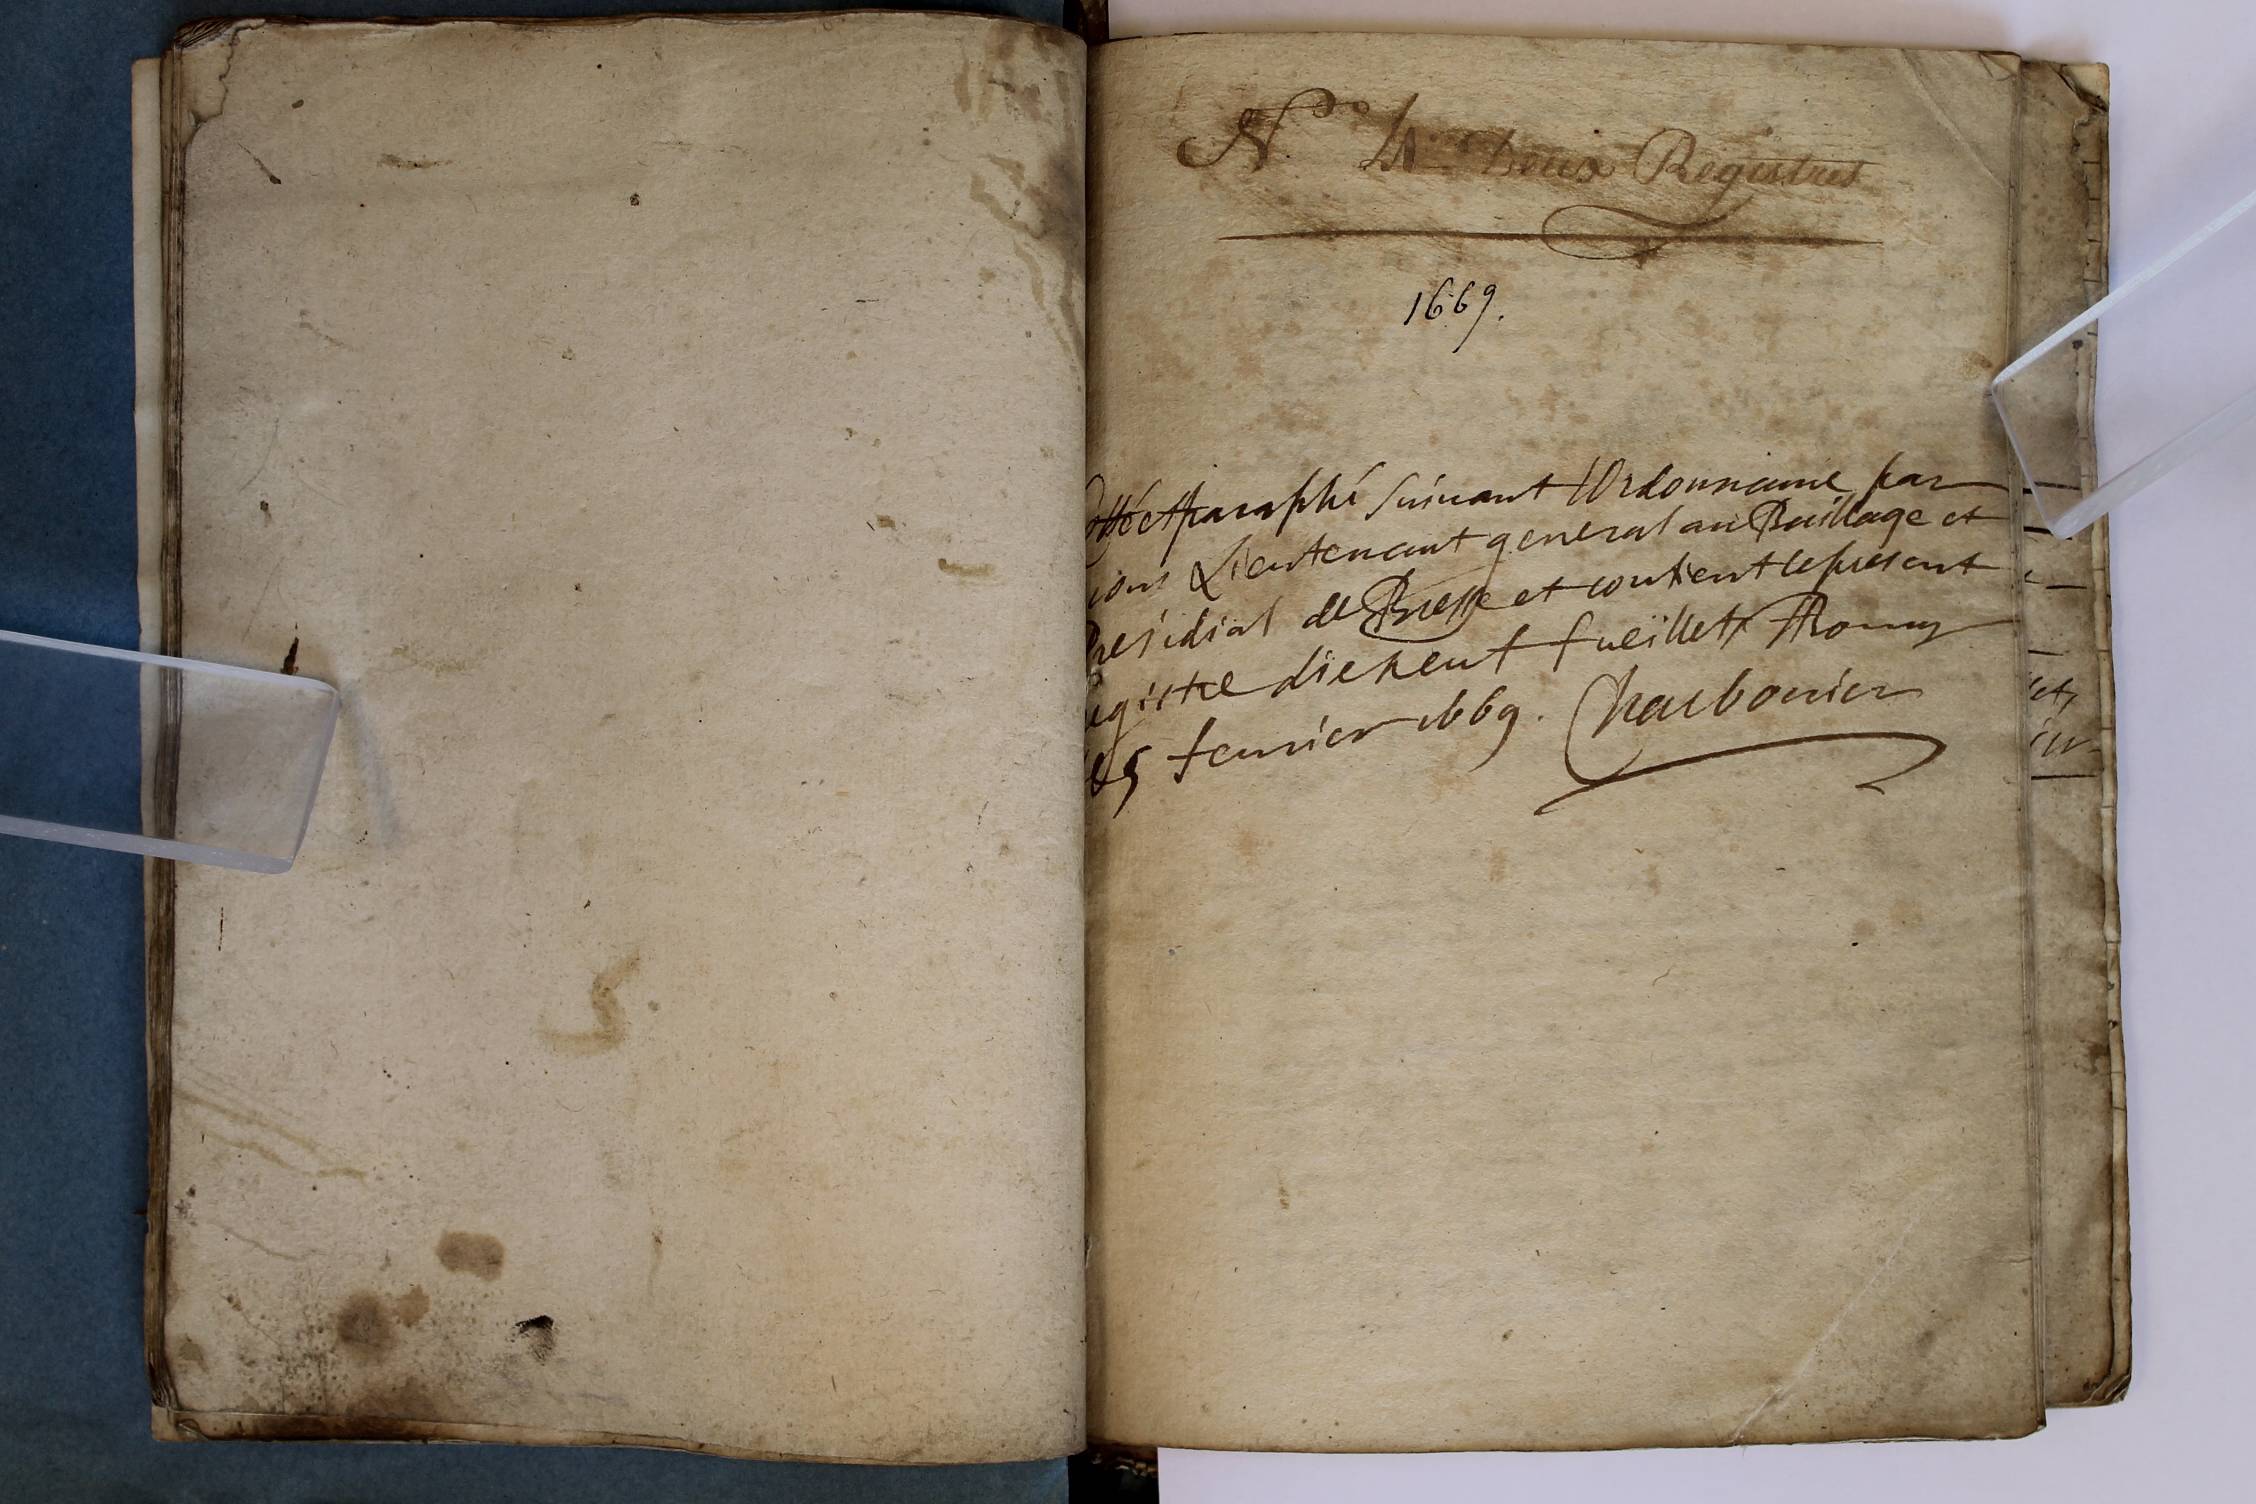 N.o Deux Registres
1669.
Cotté et Paraphé suiuant l'Ordonnance par
nous Lieutenant general au Bailliage et
Presidial de Bresse et contient le present
registre dix huit fueillets
le 5 feurier 1669. Charbonier